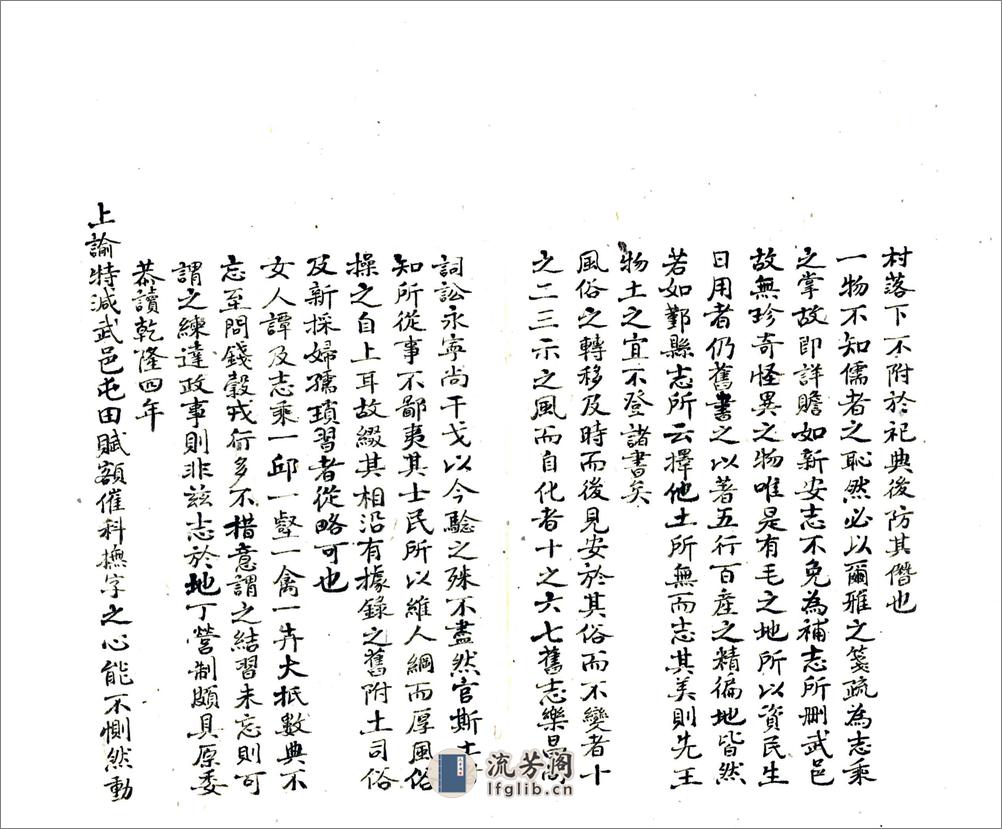 村落下不附於祀典後防其僭也
一物不知儒者之恥然必以爾雅之箋疏為志乘
之掌故即詳贍如新安志不免為補志所刪武邑
故無珍奇怪異之物唯是有毛之地所以資民生
日用者仍舊書之以著五行百産之精徧地皆然
若如鄞縣志所云擇他土所無而志其美則先王
物土之宜不登諸書矣
風俗之轉移及時而後見安於其俗而不變者十
之二三示之風而自化者十之六七舊志樂昌
詞訟永寧尚干戈以今驗之殊不盡然官斯土
知所從事不鄙夷其士民所以維人綱而厚風俗
操之自上耳故綴其相沿有據錄之舊附土司俗
及新採婦孺瑣習者從略可也
女人譚及志乘一邱一壑一禽一卉大抵數典不
忘至問錢穀戎行多不措意謂之結習未忘則可
謂之練達政事則非兹志於地丁營制頗具原委
恭讀乾隆四年
上諭特減武邑屯田賦額催科撫字之心能不惻然動
流芳阁
lfglib.cn